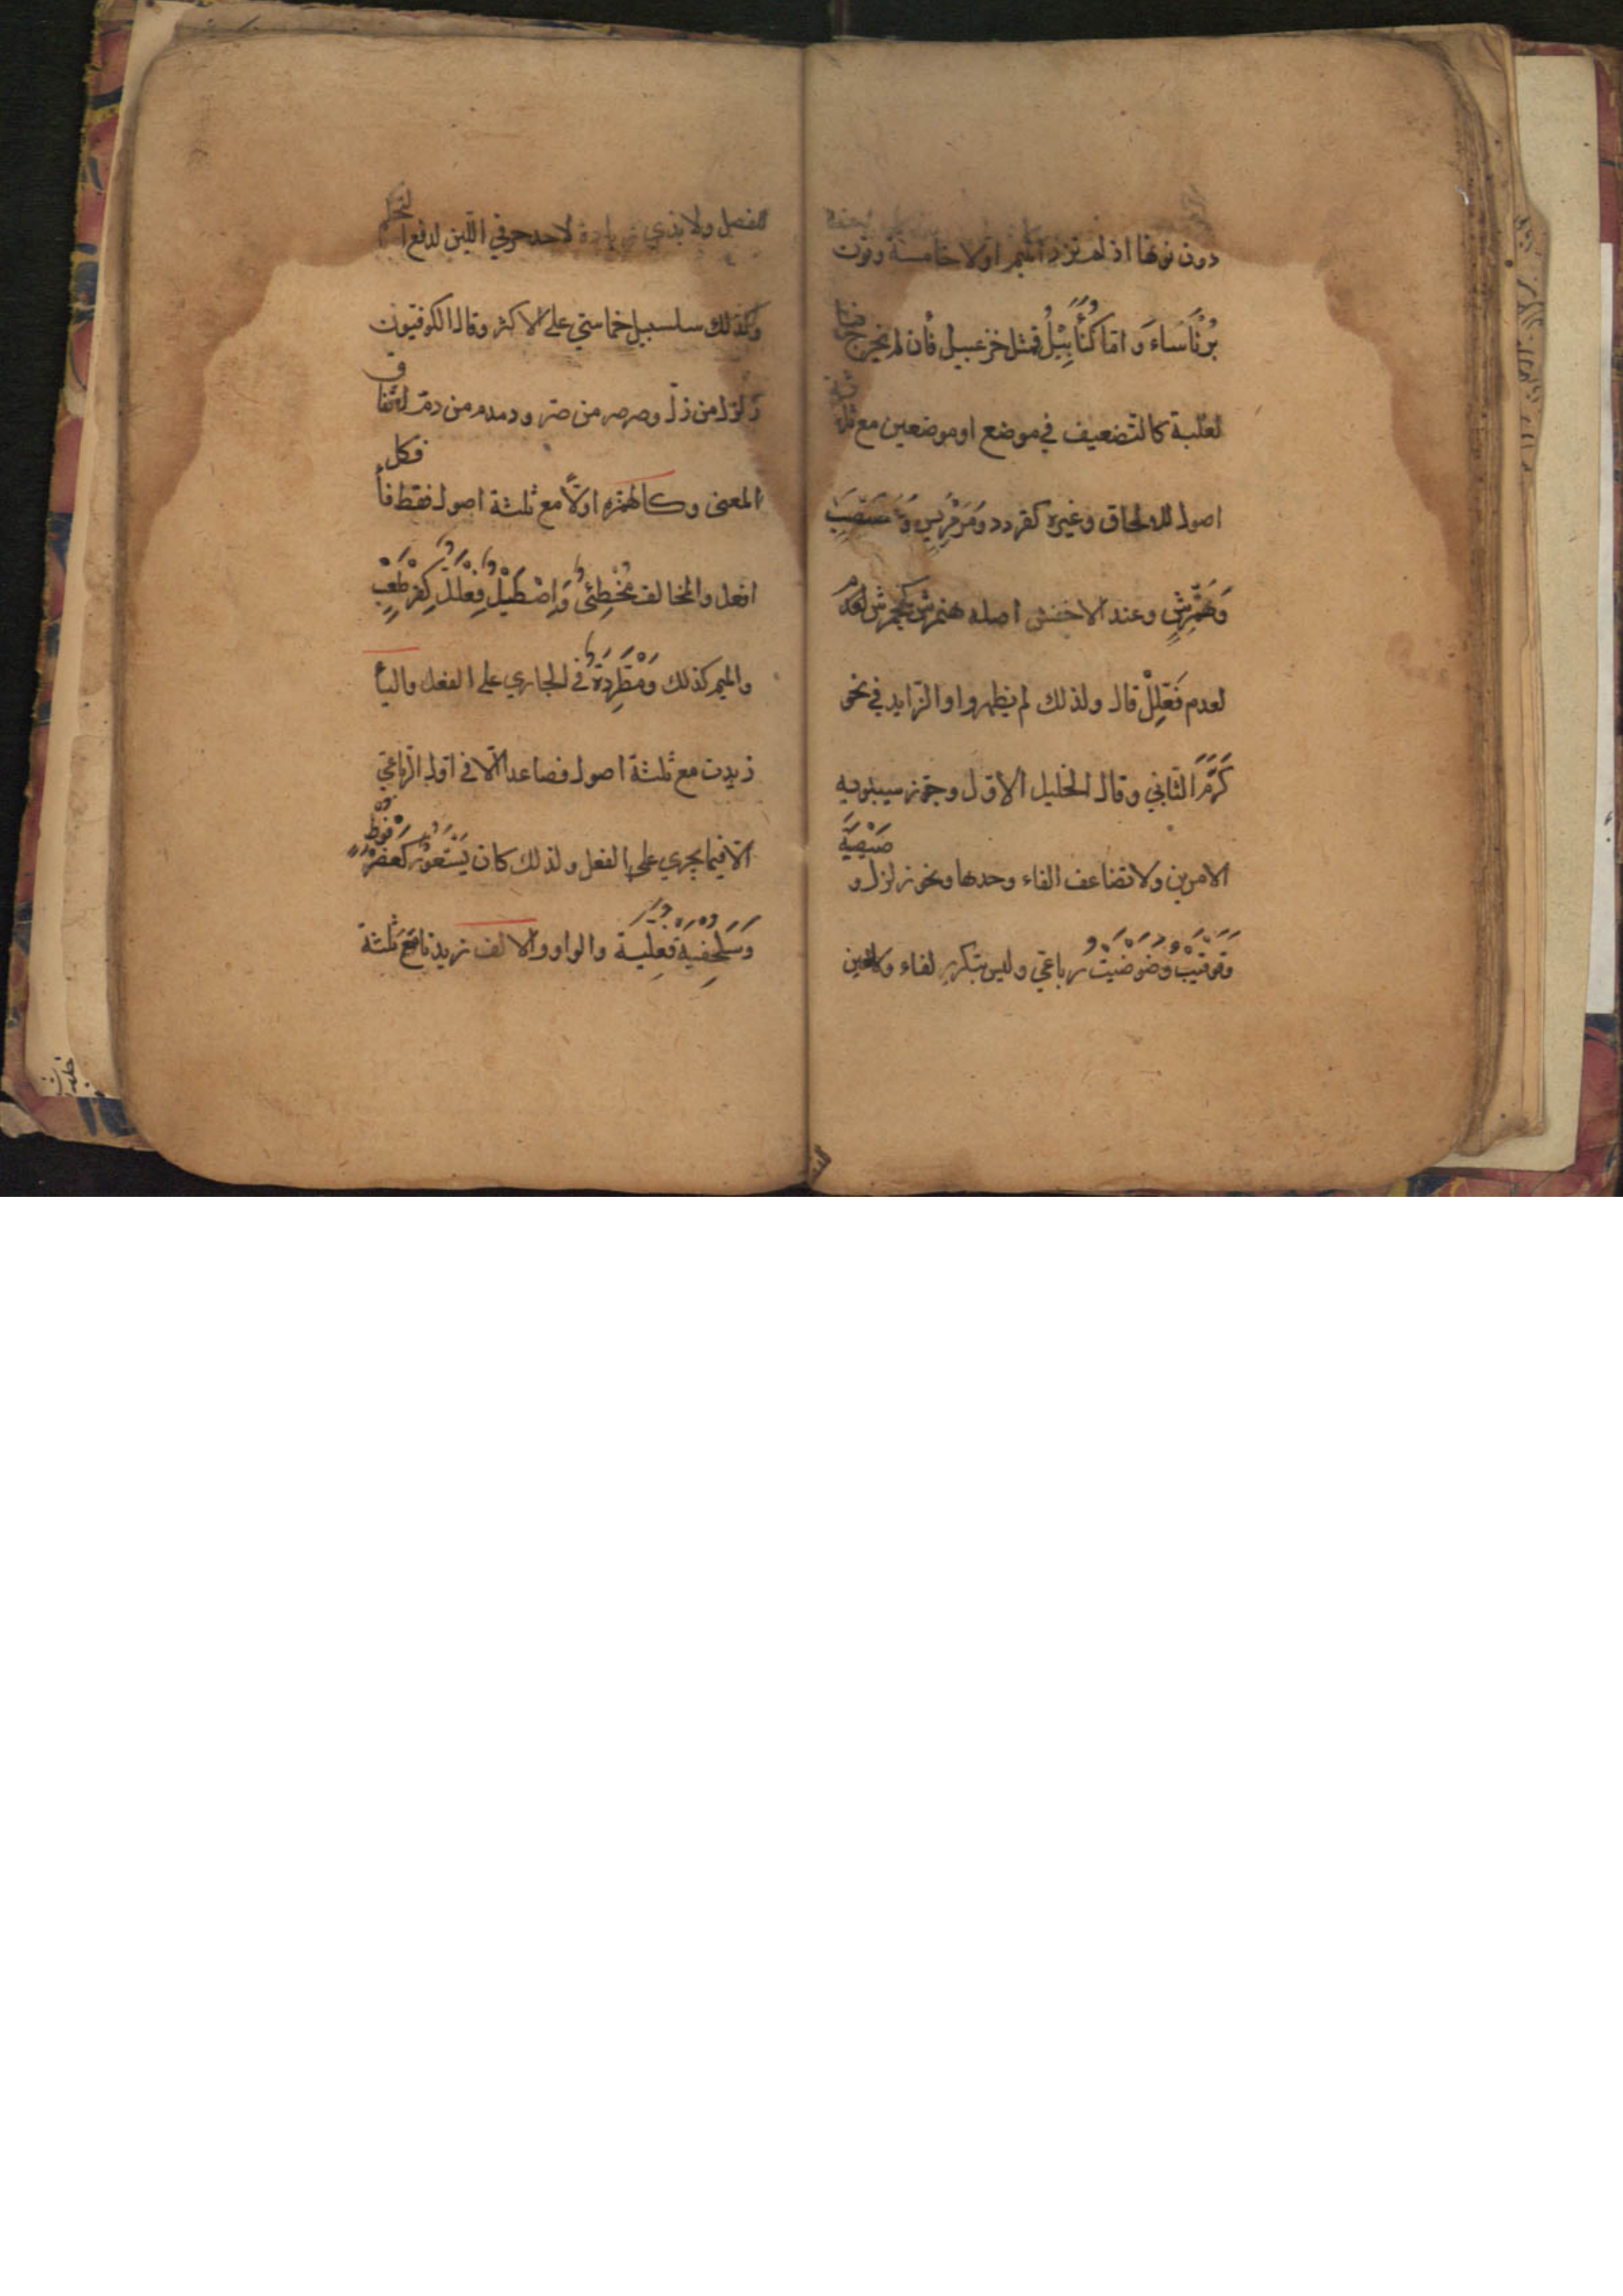 دون نونها اذ لم تزد الميم اولا خامسة ونون
بُرْنَاسَاءَ واما كُنَأْبِيْلُ فمثل خزعبيل فأن لم تخرج
لغلبة كالتضعيف في موضع او موضعين مع ثلثة
اصول للالحاق وغيره كقردد ومَرْمَرِيسٍ وعَصَبْصَبٍ
وَهَمَّرِشٍ وعند الاخفش اصله هنمرش كجحمرش لعدم
لعدم فَعَّلِلٍ قال ولذلك لم يظهروا والزايد في نحو
كَرَّمَ الثاني وقال الخليل الاول وجوّز سيبويه
الامرين ولا تضاعف الفاء وحدها ونحو زلزل و صَيْصِيَةٍ
وَقَوْقَيْتُ وَضَوْضَيْتُ رباعي وليس بتكرير لفاء ولا لعين
للفصل ولا بذي زيادة لاحد حرفي اللين لدفع التحكم
وكذلك سلسبيل خماسيّ على الاكثر وقال الكوفيون
زلزل من زلّ وصرصر من صرّ ودمدم من دمّ لاتفاق
المعنى وكالهمزه اولاً مع ثلثة اصول فقط فأفكل
افعل والمخالف مُخْطِئٌ وَاِصْطَبْلٌ فِعْلَلٌّ كَقِرْطَعْبٍ
والميم كذلك وَمُطَّرِدَةٌ في الجاري على الفعل والياء
زيدت مع ثلثة اصول فصاعدا الّا في اول الرباعيّ
الّا فيما يجري على الفعل ولذلك كان يَسْتَعُوْرٌ كعَضْرَفُوْطٍ
وَسُلَحْفِيَةٌ فُعَلِّيَة والواو والالف زيدتا مَعَ ثلثة